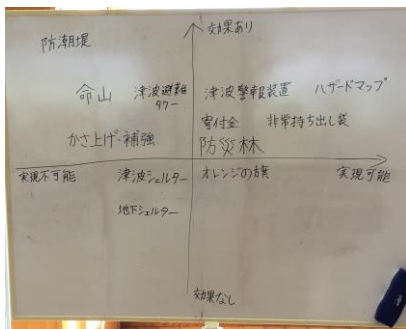 効果あり
防潮堤
命山
津波避難
タワー
津波警報装置
ハザードマップ
寄付金
非常持ち出し袋
かさ上げ・補強
防災林
実現不可能
津波シェルター
オレンジの旗
実現可能
地下シェルター
効果なし